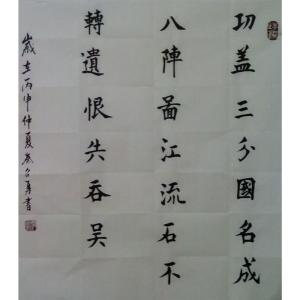 功盖三分國名成
八陣啚江流石不
轉遺恨失吞吴
歲在丙申仲夏
书